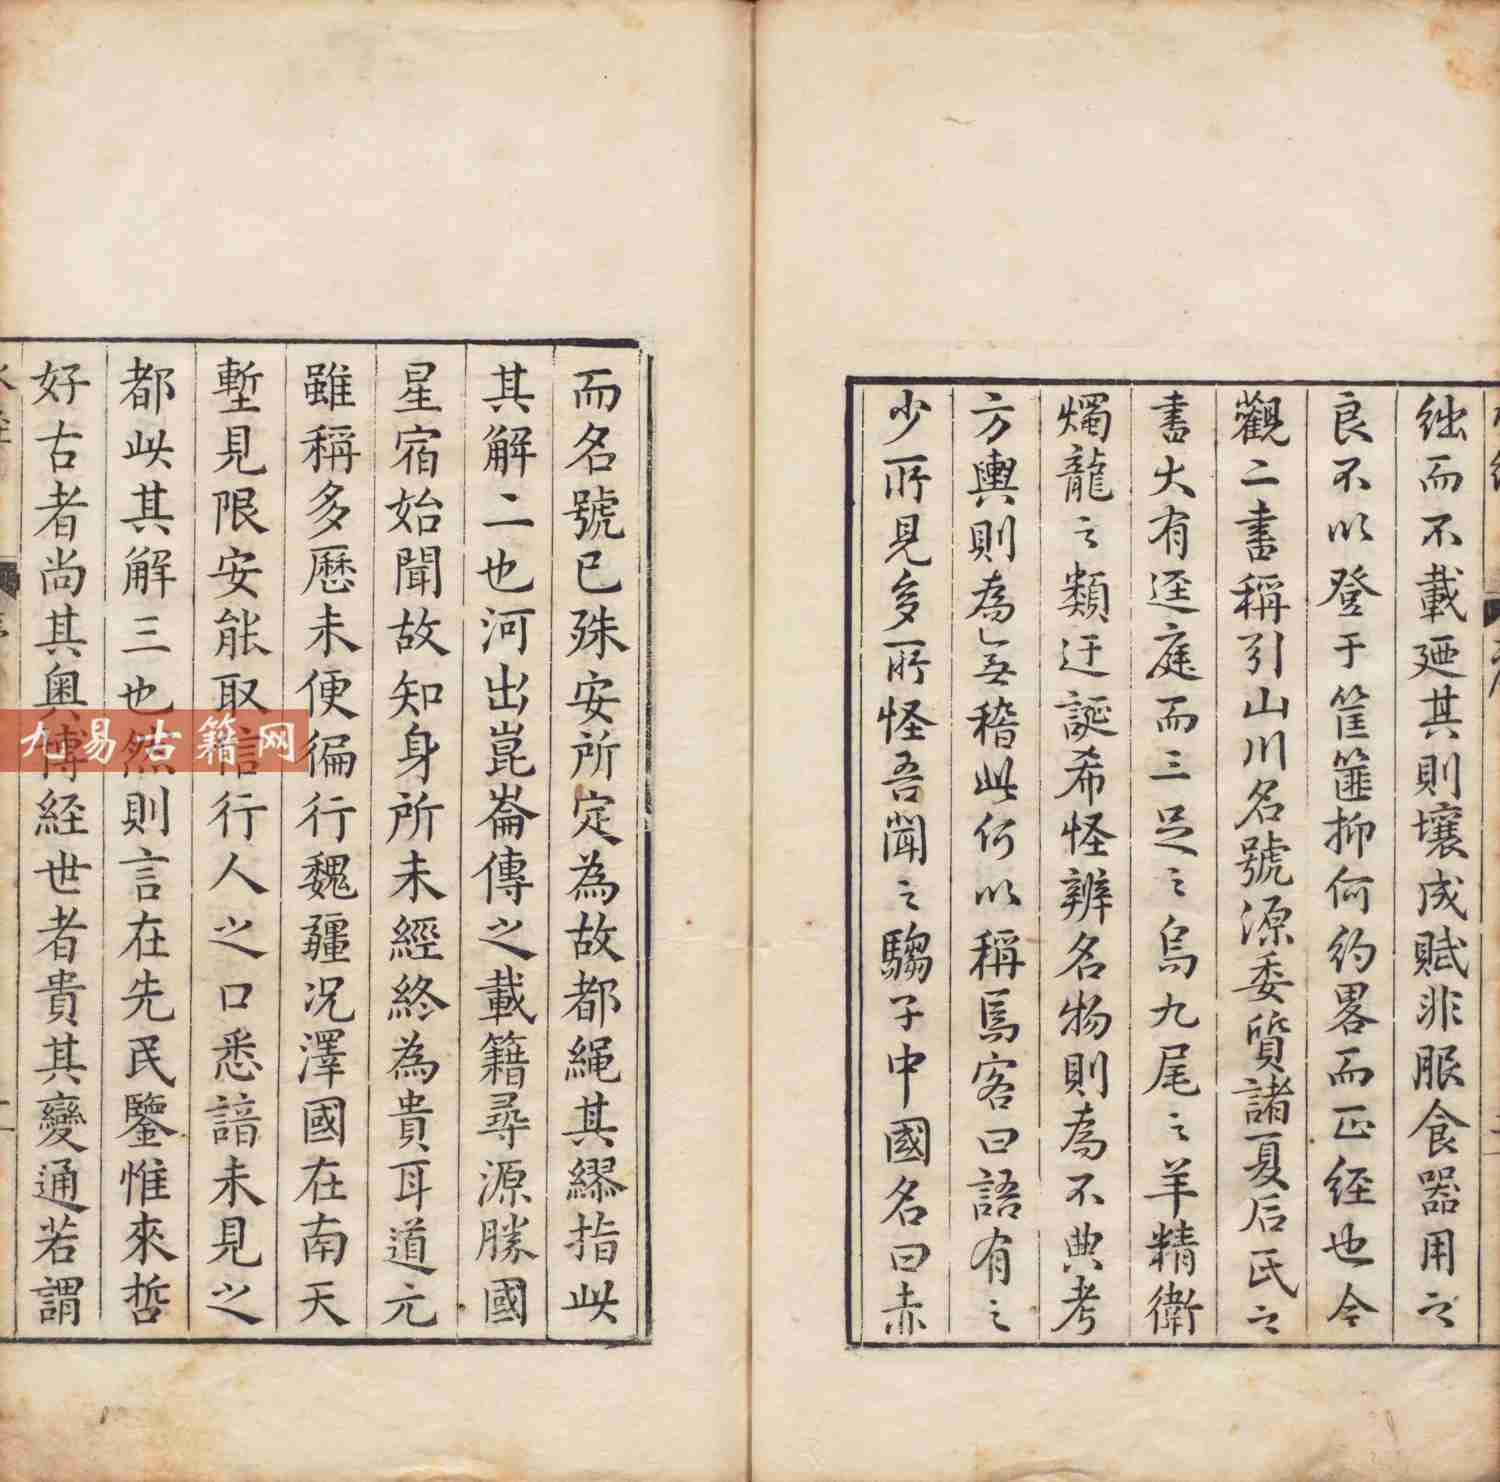 絀而不載廼其則壤成賦非服食器用之
良不以登于筐篚抑何約畧而正経也今
觀二書稱引山川名號源委質諸夏后氏之
書大有逕庭而三足之烏九尾之羊精衛
燭龍之類迂誕希怪辨名物則為不典考
方輿則為無稽此何以稱焉客曰語有之
少所見多所怪吾聞之騶子中國名曰赤
而名號已殊安所定為故都繩其繆指此
其解二也河出崑崙傳之載籍尋源勝國
星宿始聞故知身所未經終為貴耳道元
雖稱多歷未便徧行魏疆况澤國在南天
塹見限安能取信行人之口悉諳未見之
都此其解三也然則言在先民鑒惟來哲
好古者尚其奥博経世者貴其變通若謂
九易古籍网